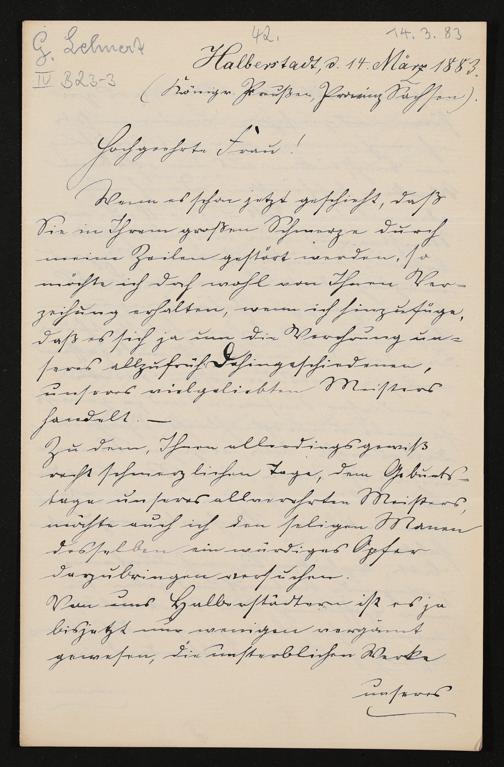 G. Lehnert
IV B23-3
42.
14.3.83
Halberstadt, d. 14. März 1883.
(Königr. Preußen, Provinz Sachsen).
Hochgeehrte Frau!
Wenn es schon jetzt geschieht, daß
Sie in Ihrem großen Schmerze durch
meine Zeilen gestört werden, so
möchte ich doch wohl von Ihnen Ver-
zeihung erhalten, wenn ich hinzufüge,
daß es sich ja um die Verehrung un-
seres allzufrüh Dahingeschiedenen,
unseres vielgeliebten Meisters
handelt. —
Zu dem, Ihnen allerdings gewiß
recht schmerzlichen Tage, dem Geburts-
tage unseres allverehrten Meisters,
möchte auch ich den seligen Manen
desselben ein würdiges Opfer
darzubringen versuchen.
Von uns Halberstädtern ist es ja
bisjetzt nur wenigen vergönnt
gewesen, die unsterblichen Werke
unseres